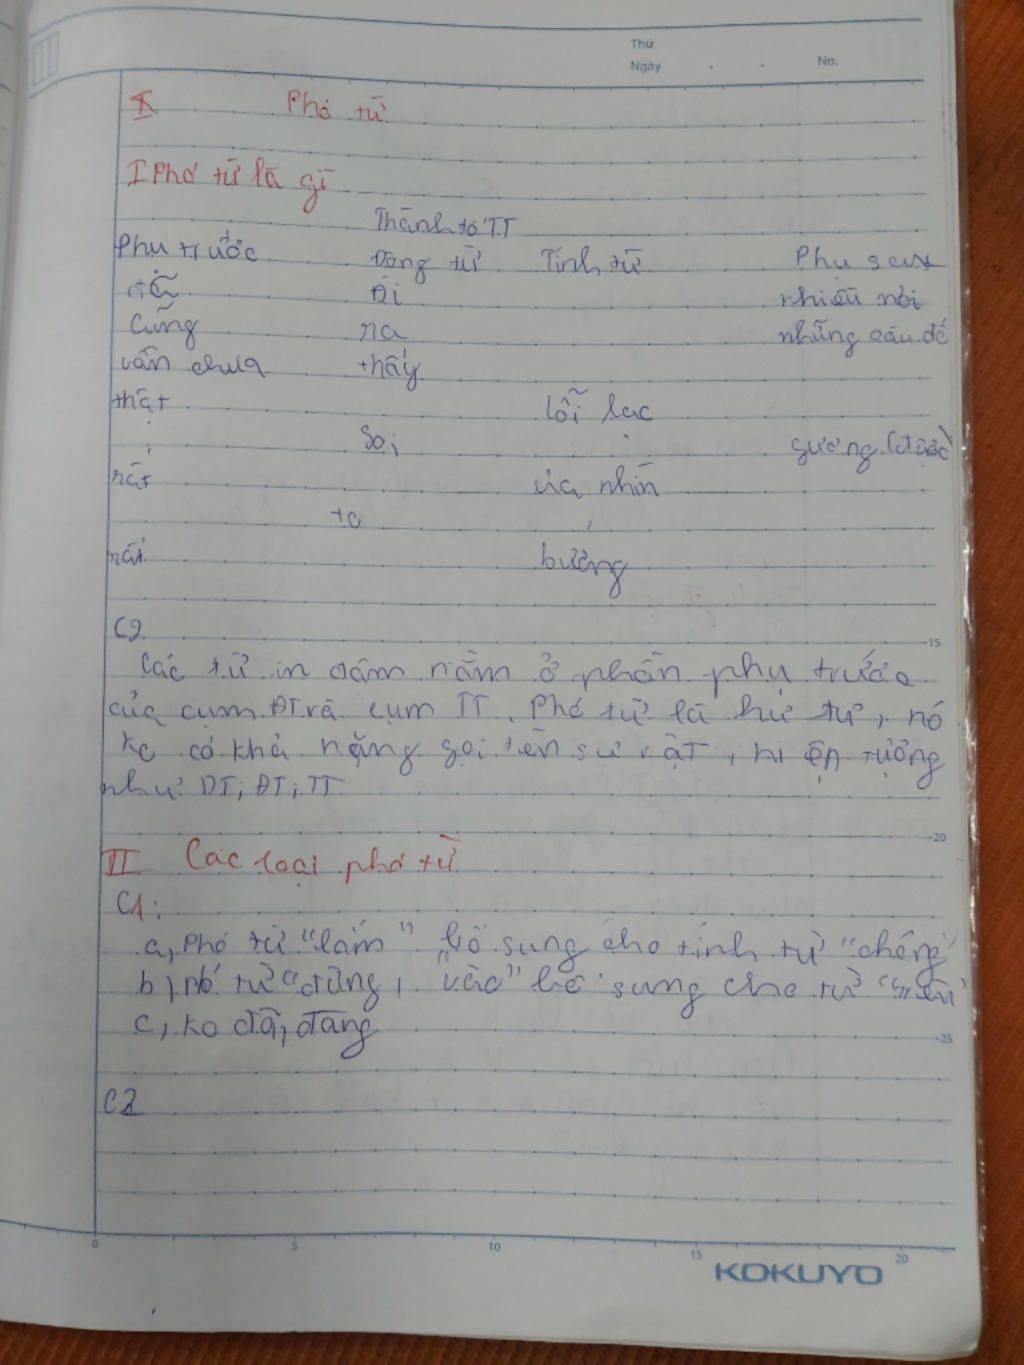 Thứ
Ngày . . No.
Phó từ
I Phó từ là gì
Thành tố TT
Phụ trước Động từ Tính từ Phụ sau
đã Đi nhiều nơi
Cũng ra những câu đố
vẫn chưa thấy
thật lỗi lạc
Soi gương (được)
rất ưa nhìn
to
rất bướng
C2
Các từ in đậm nằm ở phần phụ trước
của cụm ĐT và cụm TT. Phó từ là hư từ, nó
ko có khả năng gọi tên sự vật, hiện tượng
như DT, ĐT, TT
II Các loại phó từ
C1:
a, Phó từ "lắm" bổ sung cho tính từ "chóng"
b, Phó từ "đừng, "vào" bổ sung cho từ
c, ko đã, đang
C2
15
20
25
0 5 10 15 20
KOKUYO